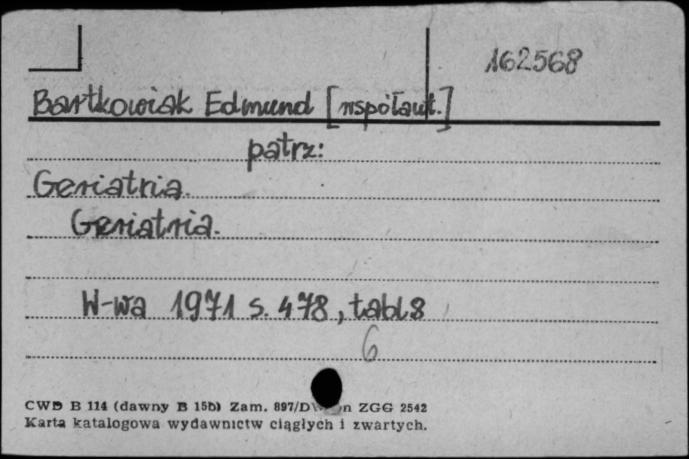 162568
Bartkowiak Edmund [współaut.]
patrz:
Geriatria.
Geriatria.
W-wa 1971 s. 478, tabl 8
6
CWD B 114 (dawny B 15b) Zam. 897/D n ZGG 2542
Karta katalogowa wydawnictw ciągłych i zwartych.